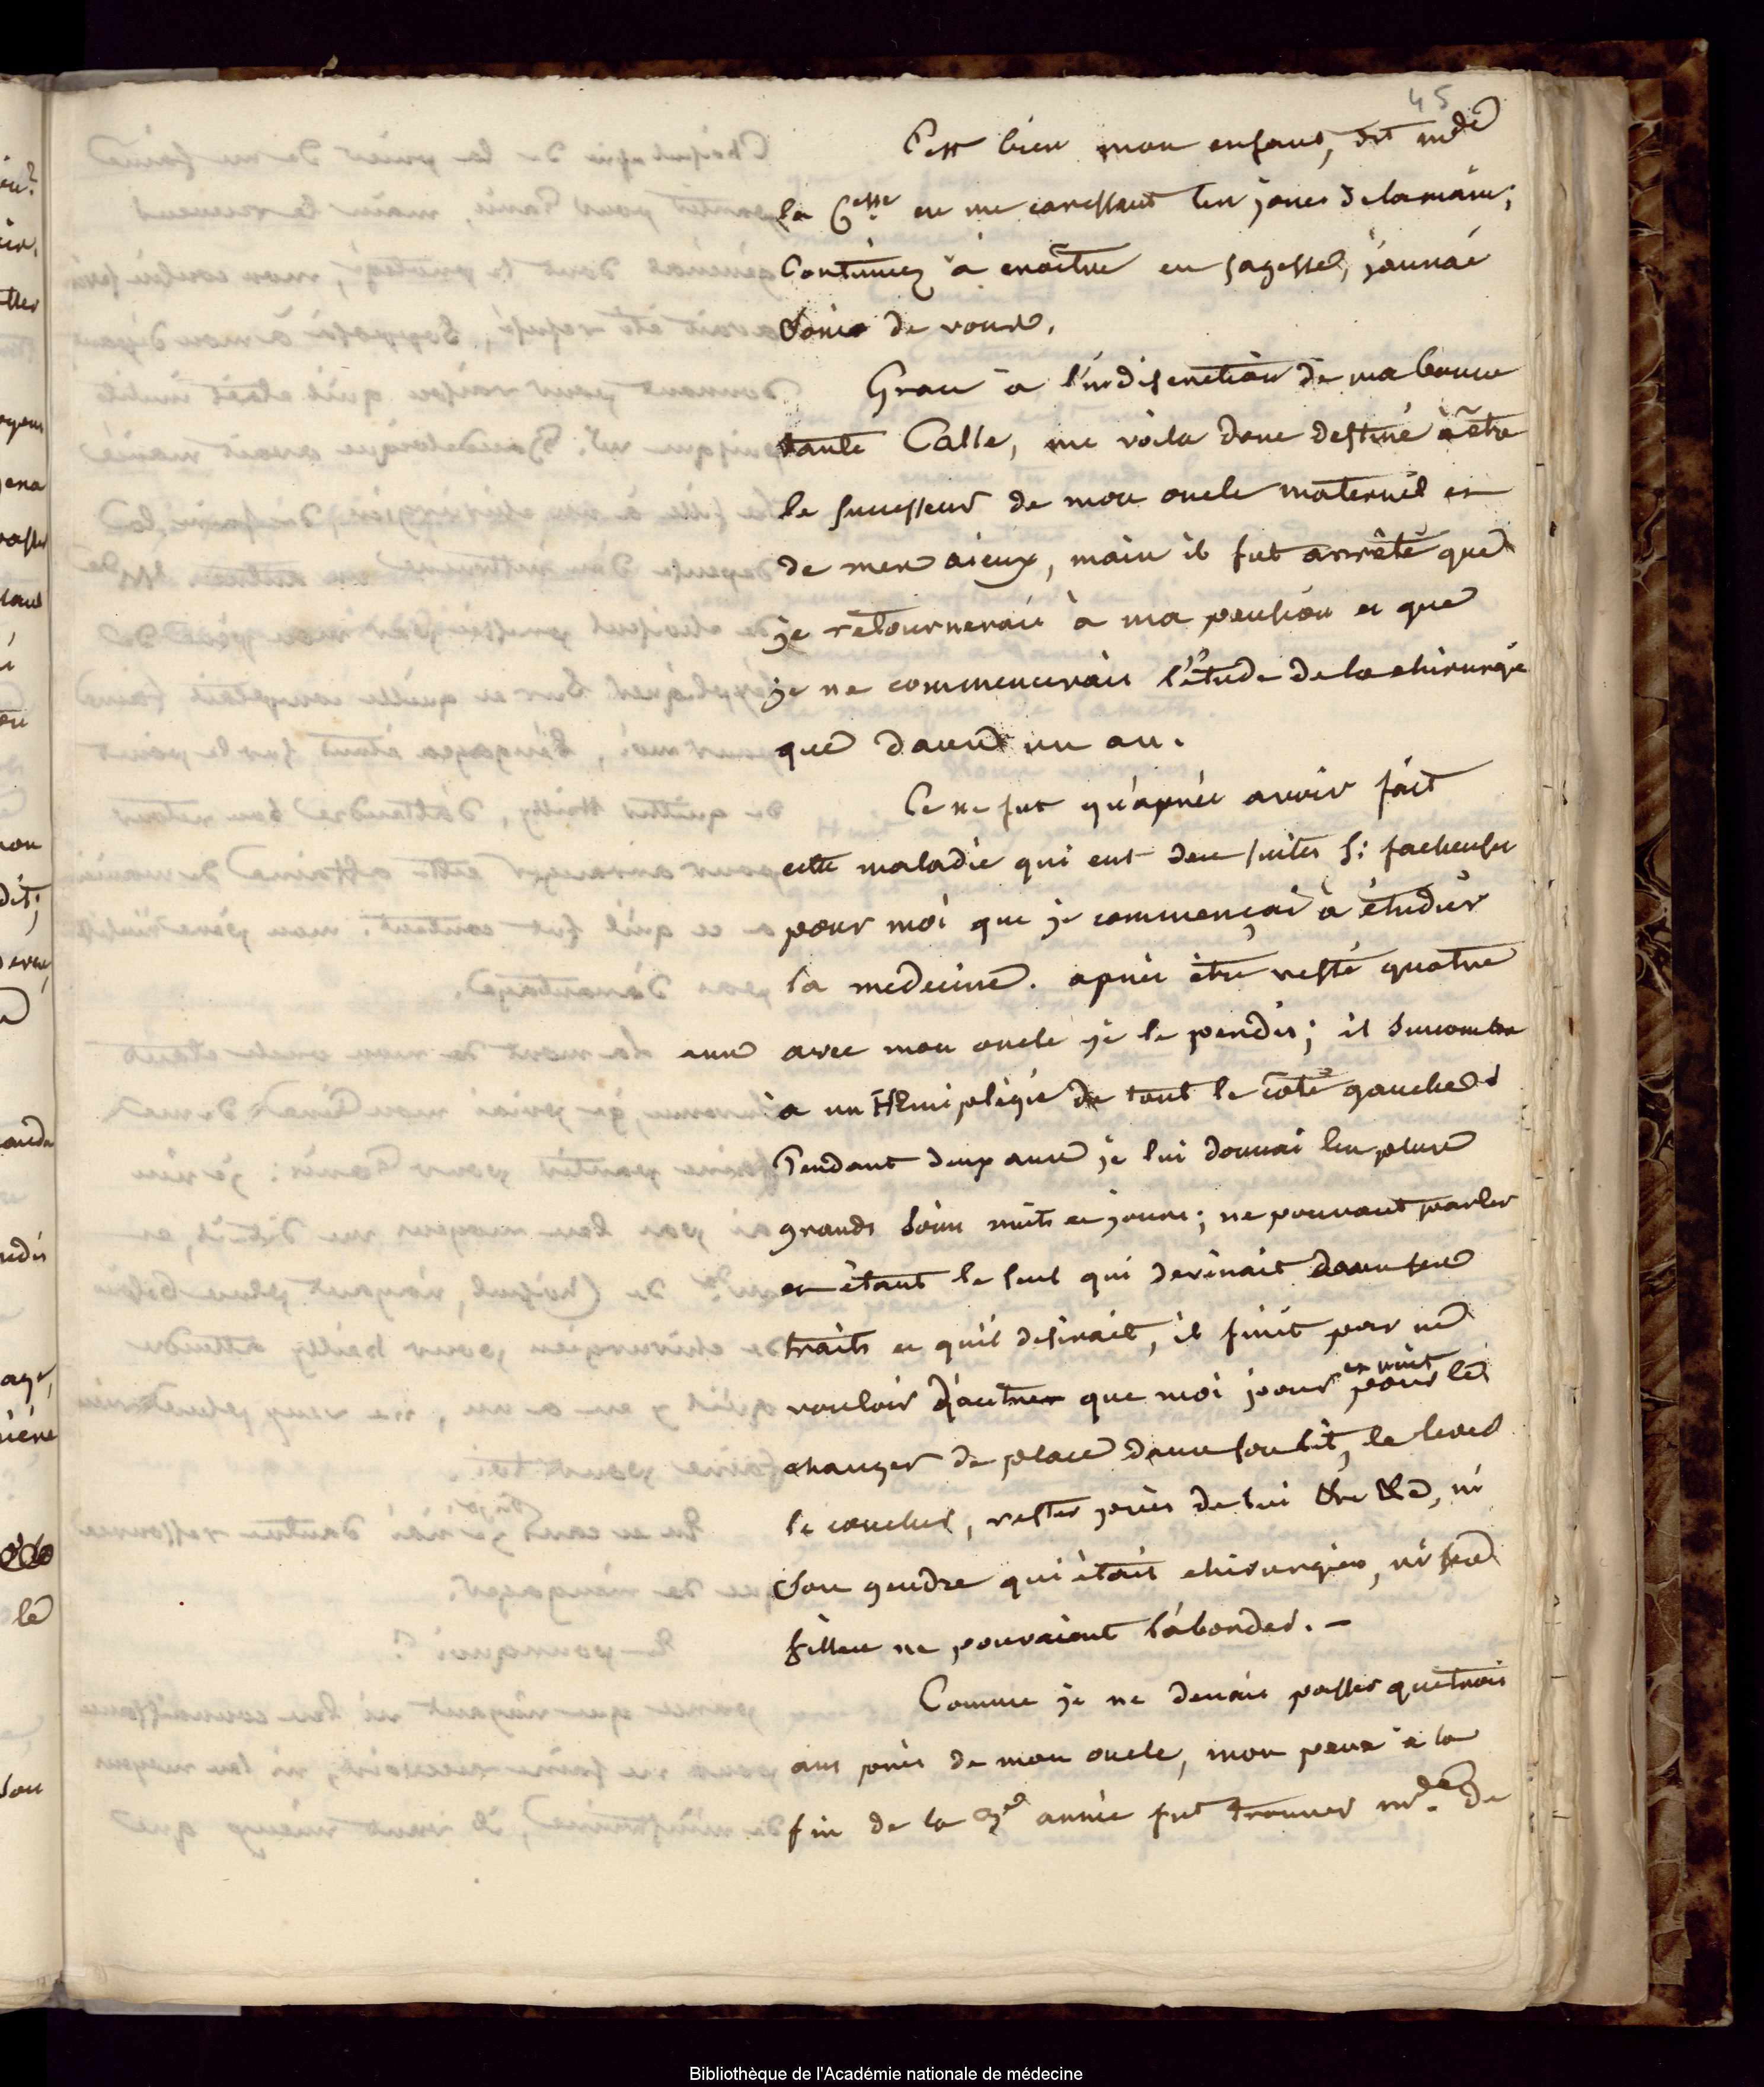 45
C'est bien mon enfant, dit mde
la Ctesse en me caressant les joues de la main;
continuez à croître en sagesse, j'aurai
soin de vous.
Grace à l'indiscrétion de ma bonne
tante Calle, me voila donc destiné à être
le successeur de mon oncle maternel et
de mes aieux, mais il fut arrêté que
je retournerais à ma pension et que
je ne commencerais l'étude de la chirurgie
que dans un an.
Ce ne fut qu'après avoir fait
cette maladie qui eut des suites si facheuses
pour moi que je commençai à étudier
la medecine. après être resté quatre
ans avec mon oncle je le perdis; il succomba
à un Hémiplégie de tout le côté gauche
Pendant deux ans je lui donnai les plus
grands soins nuits et jours; ne pouvant parler
et étant le seul qui devinait dans ses
traits ce qu'il desirait, il finit par ne
vouloir d'autres que moi jour et nuit pour le
changer de place dans son lit, le lever
le coucher, rester près de lui &c &c, ni
son gendre qui était chirurgien, ni ses
filles ne pouvaient l'aborder. —
Comme je ne devais passer que trois
ans près de mon oncle, mon pere à la
fin de la 3e année fut trouver mde de
Bibliothèque de l'Académie nationale de médecine